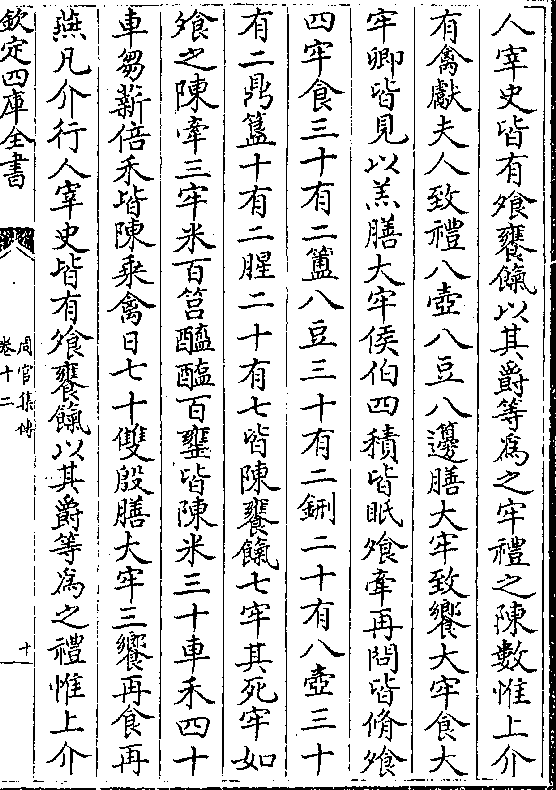 人宰史皆有飱饔餼以其爵等爲之牢禮之陳數惟上介
有禽獻夫人致禮八壺八豆八籩膳大牢致饗大牢食大
牢卿皆見以羔膳大牢侯伯四積皆眡飱牽再問皆脩飱
四牢食三十有二簠八豆三十有二鉶二十有八壺三十
有二鼎簋十有二腥二十有七皆陳饔餼七牢其死牢如
飱之陳牽三牢米百筥醯醢百罋皆陳米三十車禾四十
車芻薪倍禾皆陳乘禽日七十雙殷膳大牢三饗再食再
燕凡介行人宰史皆有飱饔餼以其爵等爲之禮惟上介
欽定四庫全書
周官集傳
卷十二
十